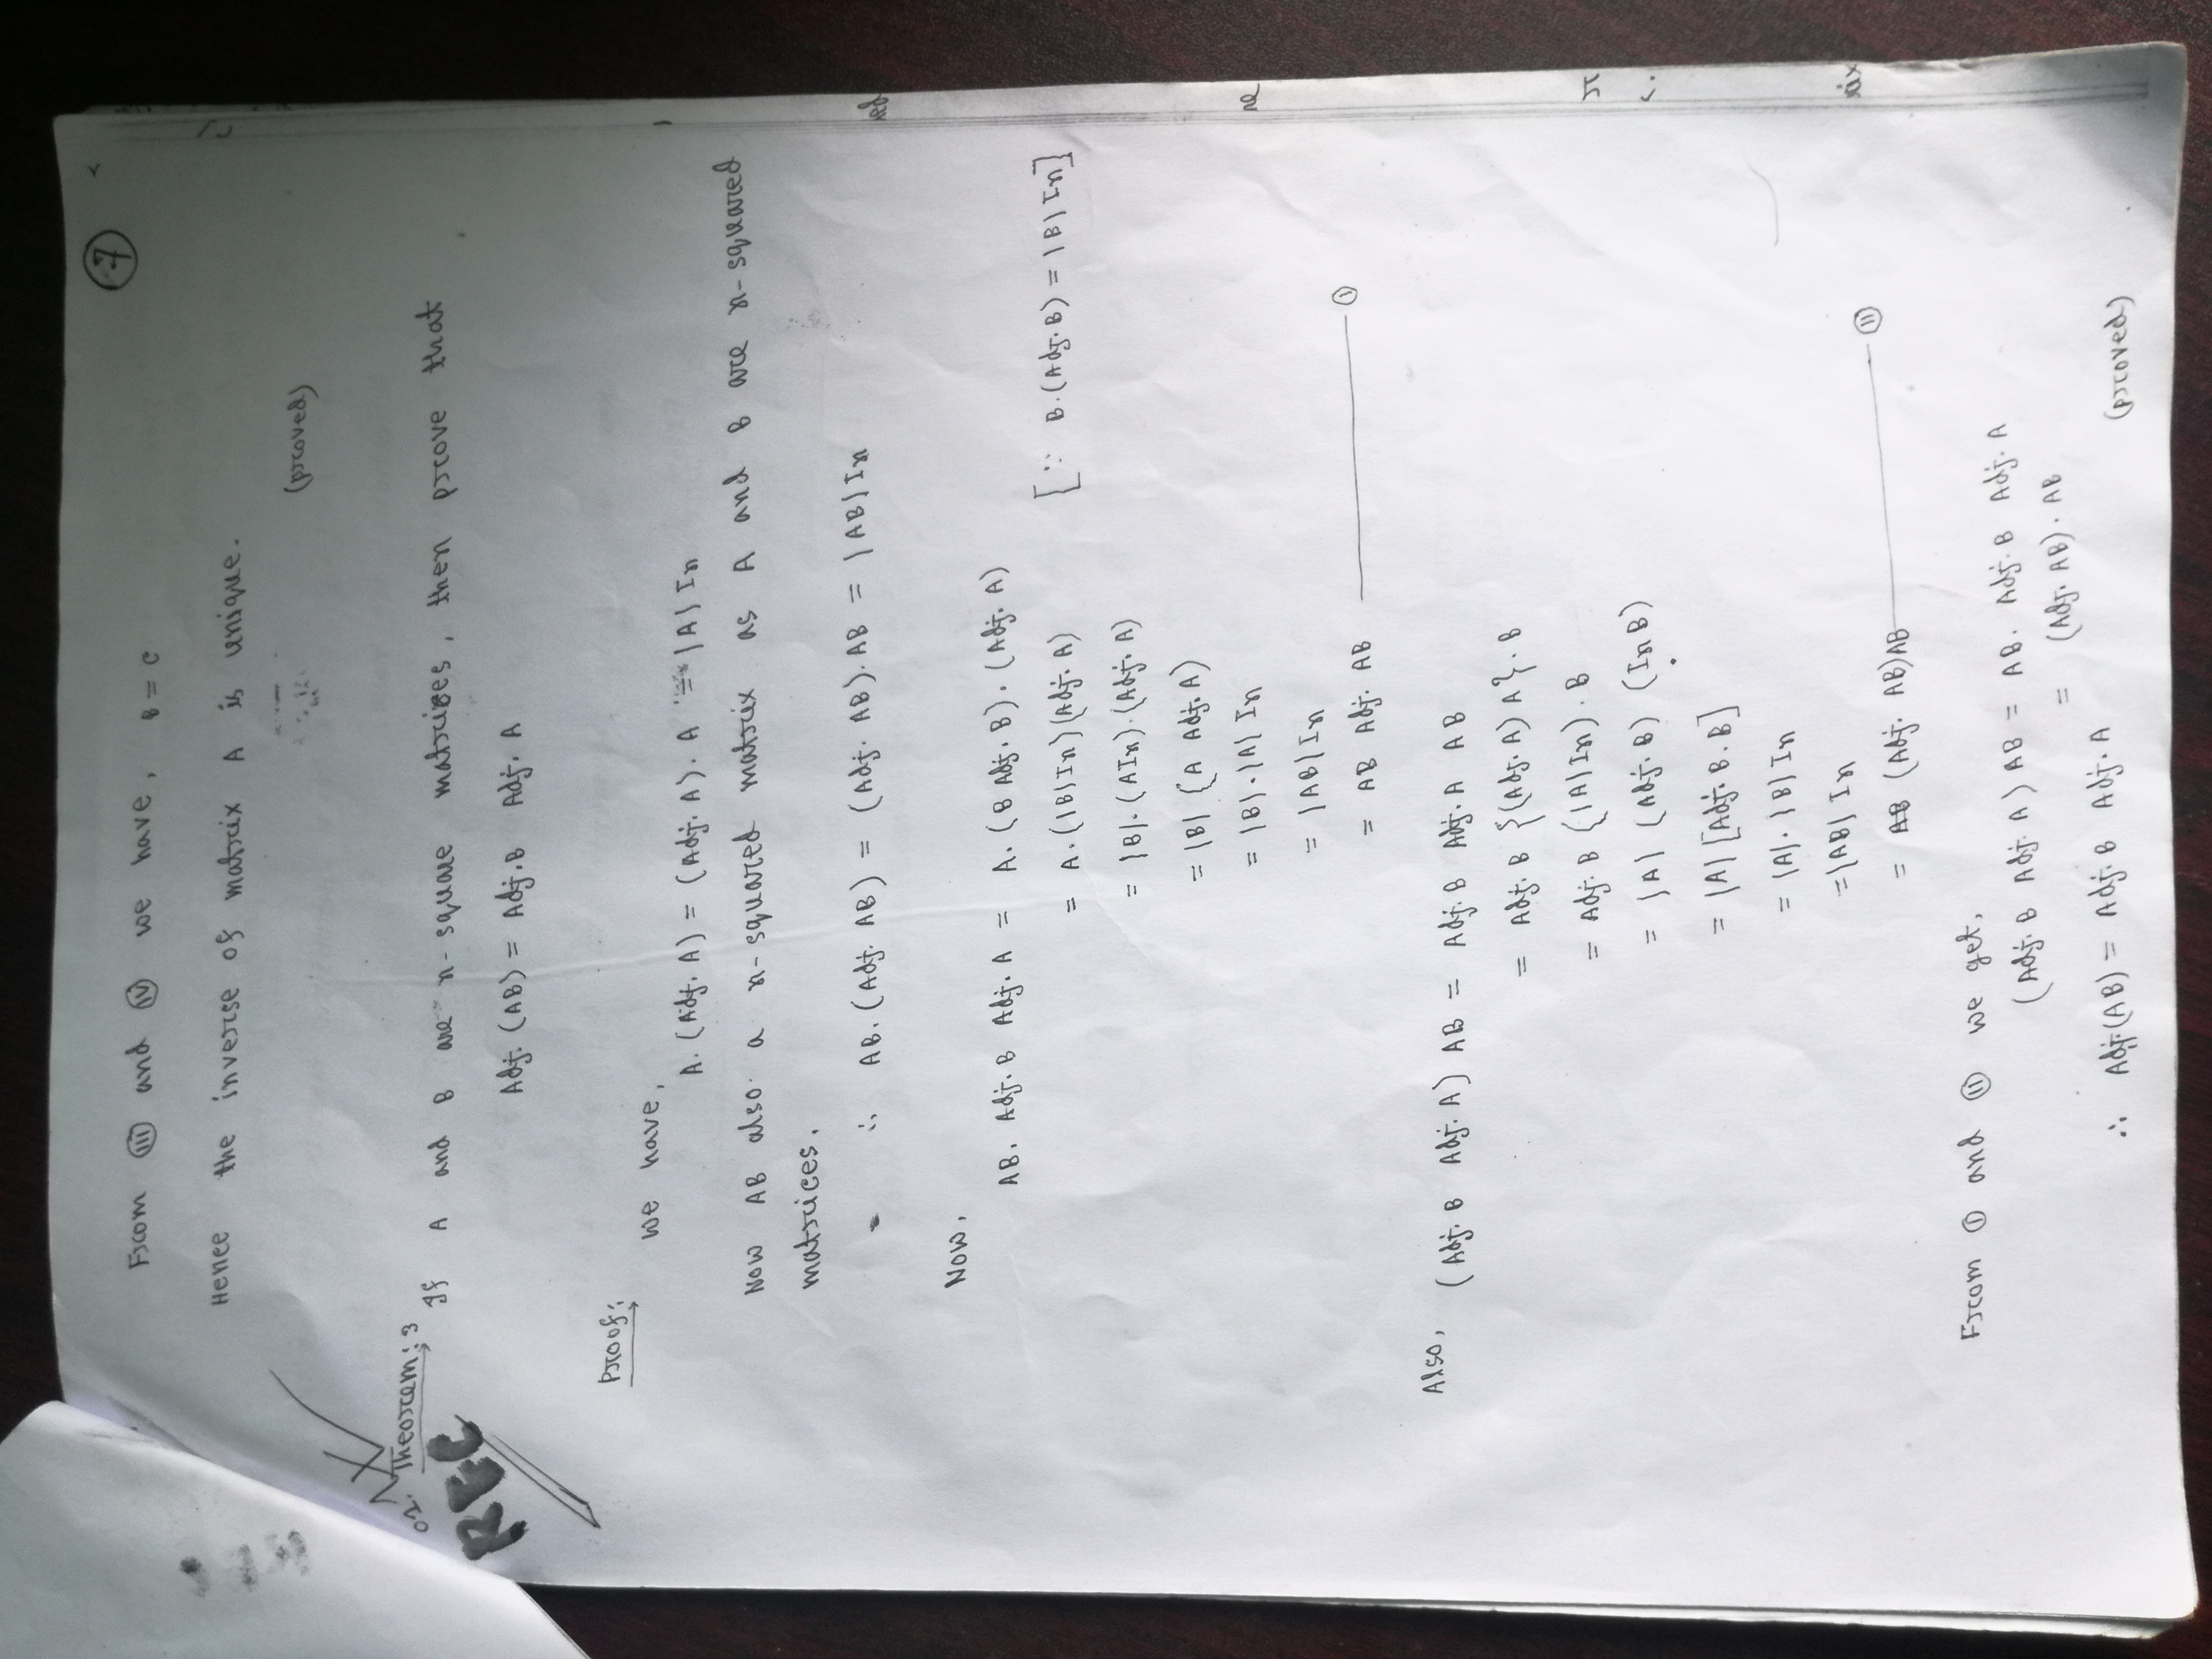 7
From (III) and (IV) we have, B = C
Hence the inverse of matrix A is unique.
(proved)
01. Theorem: 3
REC
If A and B are n-square matrices, then prove that
Adj. (AB) = Adj.B Adj. A
Proof:
we have,
A. (Adj. A) = (Adj. A). A = |A| In
Now AB also a n-squared matrix as A and B are n-squared
matrices.
∴ AB. (Adj. AB) = (Adj. AB). AB = |AB| In
Now,
AB. Adj. B Adj. A = A. (B Adj. B). (Adj. A)
= A. (|B| In) (Adj. A) [∵ B. (Adj. B) = |B| In]
= |B|. (A In). (Adj. A)
= |B| (A Adj. A)
= |B|. |A| In
= |AB| In
= AB Adj. AB (I)
Also, (Adj. B Adj. A) AB = Adj. B Adj. A AB
= Adj. B {(Adj. A) A}. B
= Adj. B (|A| In). B
= |A| (Adj. B) (In B)
= |A| [Adj. B. B]
= |A|. |B| In
= |AB| In
= (Adj. AB) AB (II)
From (I) and (II) we get,
(Adj. B Adj. A) AB = AB. Adj. B Adj. A
= (Adj. AB). AB
∴ Adj. (AB) = Adj. B Adj. A
(proved)